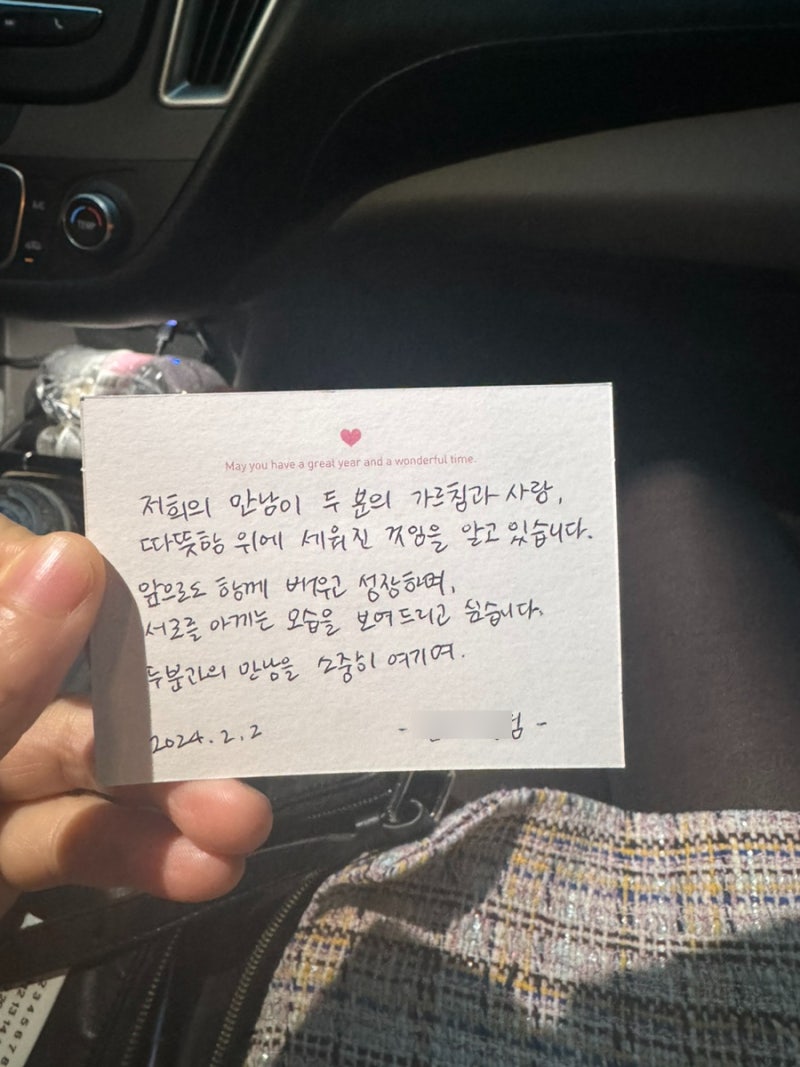 TEMP
A/C
May you have a great year and a wonderful time.
저희의 만남이 두 분의 가르침과 사랑,
따뜻함 위에 세워진 것임을 알고 있습니다.
앞으로도 함께 배우고 성장하며,
서로를 아끼는 모습을 보여드리고 싶습니다.
두분과의 만남을 소중히 여기며.
2024.2.2